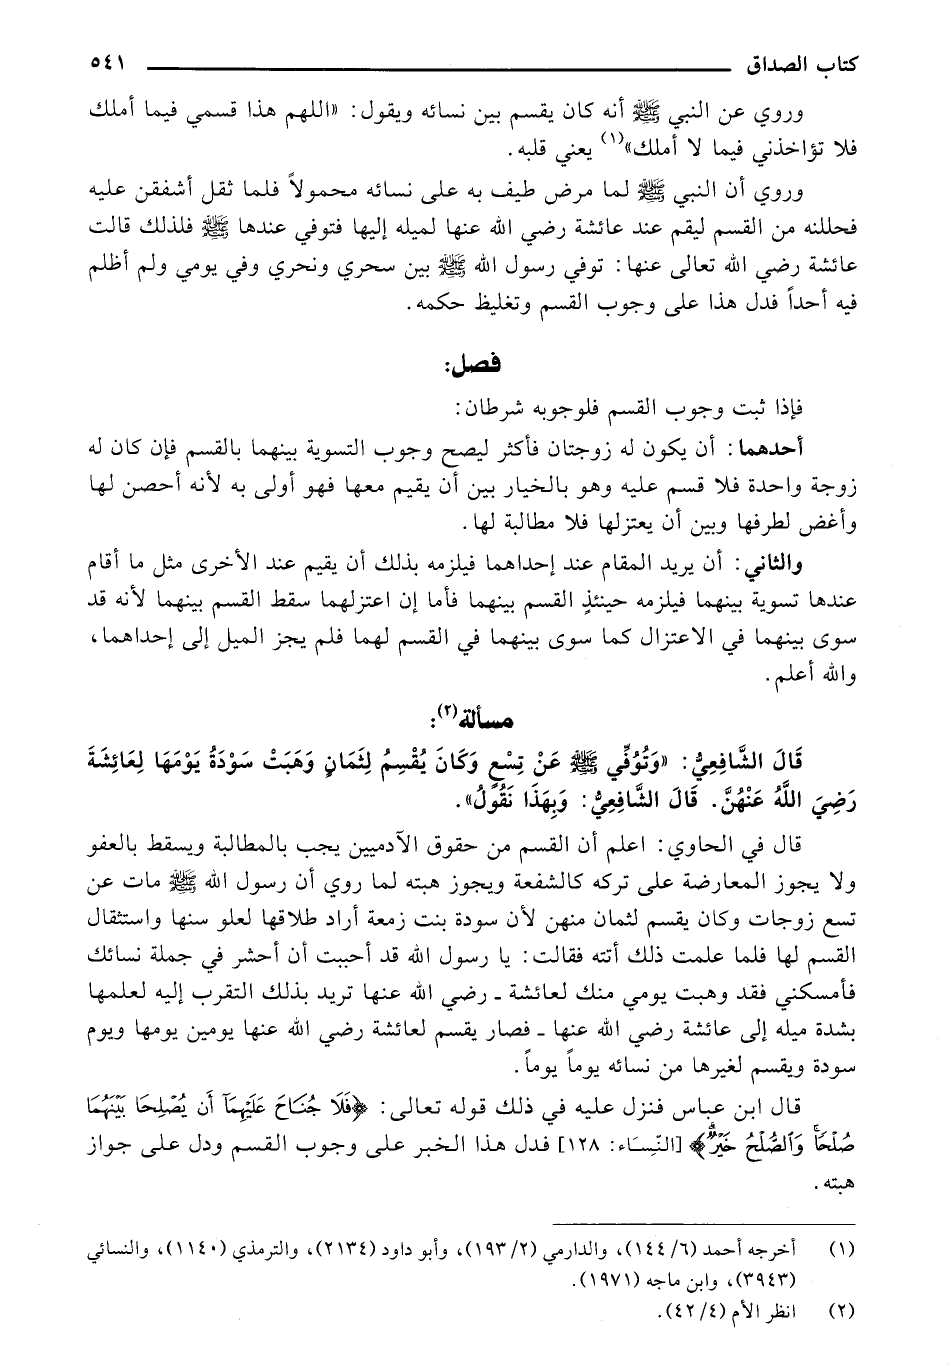 كتاب الصداق ٥٤١
وروي عن النبي ﷺ أنه كان يقسم بين نسائه ويقول: «اللهم هذا قسمي فيما أملك
فلا تؤاخذني فيما لا أملك»(١) يعني قلبه.
وروي أن النبي ﷺ لما مرض طيف به على نسائه محمولاً فلما ثقل أشفقن عليه
فحللنه من القسم ليقم عند عائشة رضي الله عنها لميله إليها فتوفي عندها ﷺ فلذلك قالت
عائشة رضي الله تعالى عنها: توفي رسول الله ﷺ بين سحري ونحري وفي يومي ولم أظلم
فيه أحداً فدل هذا على وجوب القسم وتغليظ حكمه.
فصل:
فإذا ثبت وجوب القسم فلوجوبه شرطان:
أحدهما: أن يكون له زوجتان فأكثر ليصح وجوب التسوية بينهما بالقسم فإن كان له
زوجة واحدة فلا قسم عليه وهو بالخيار بين أن يقيم معها فهو أولى به لأنه أحصن لها
وأغض لطرفها وبين أن يعتزلها فلا مطالبة لها.
والثاني: أن يريد المقام عند إحداهما فيلزمه بذلك أن يقيم عند الأخرى مثل ما أقام
عندها تسوية بينهما فيلزمه حينئذٍ القسم بينهما فأما إن اعتزلهما سقط القسم بينهما لأنه قد
سوى بينهما في الاعتزال كما سوى بينهما في القسم لهما فلم يجز الميل إلى إحداهما،
والله أعلم.
مسألة(٢):
قَالَ الشَّافِعِيُّ: «وَتُوُفِّي ﷺ عَنْ تِسْعٍ وَكَانَ يُقْسِمُ لِثَمَانٍ وَهَبَتْ سَوْدَةُ يَوْمَهَا لِعَائِشَةَ
رَضِيَ اللَّهُ عَنْهُنَّ. قَالَ الشَّافِعِيُّ: وَبِهَذَا نَقُولُ».
قال في الحاوي: اعلم أن القسم من حقوق الآدميين يجب بالمطالبة ويسقط بالعفو
ولا يجوز المعارضة على تركه كالشفعة ويجوز هبته لما روي أن رسول الله ﷺ مات عن
تسع زوجات وكان يقسم لثمان منهن لأن سودة بنت زمعة أراد طلاقها لعلو سنها واستثقال
القسم لها فلما علمت ذلك أتته فقالت: يا رسول الله قد أحببت أن أحشر في جملة نسائك
فأمسكني فقد وهبت يومي منك لعائشة - رضي الله عنها تريد بذلك التقرب إليه لعلمها
بشدة ميله إلى عائشة رضي الله عنها - فصار يقسم لعائشة رضي الله عنها يومين يومها ويوم
سودة ويقسم لغيرها من نسائه يوماً يوماً.
قال ابن عباس فنزل عليه في ذلك قوله تعالى: ﴿فَلَا جُنَاحَ عَلَيْهِمَا أَن يُصْلِحَا بَيْنَهُمَا
صُلْحًا وَالصُّلْحُ خَيْرٌ﴾ [النِّسَاء: ١٢٨] فدل هذا الخبر على وجوب القسم ودل على جواز
هبته.
(١) أخرجه أحمد (٦/ ١٤٤)، والدارمي (٢/ ١٩٣)، وأبو داود (٢١٣٤)، والترمذي (١١٤٠)، والنسائي
(٣٩٤٣)، وابن ماجه (١٩٧١).
(٢) انظر الأم (٤/ ٤٢).